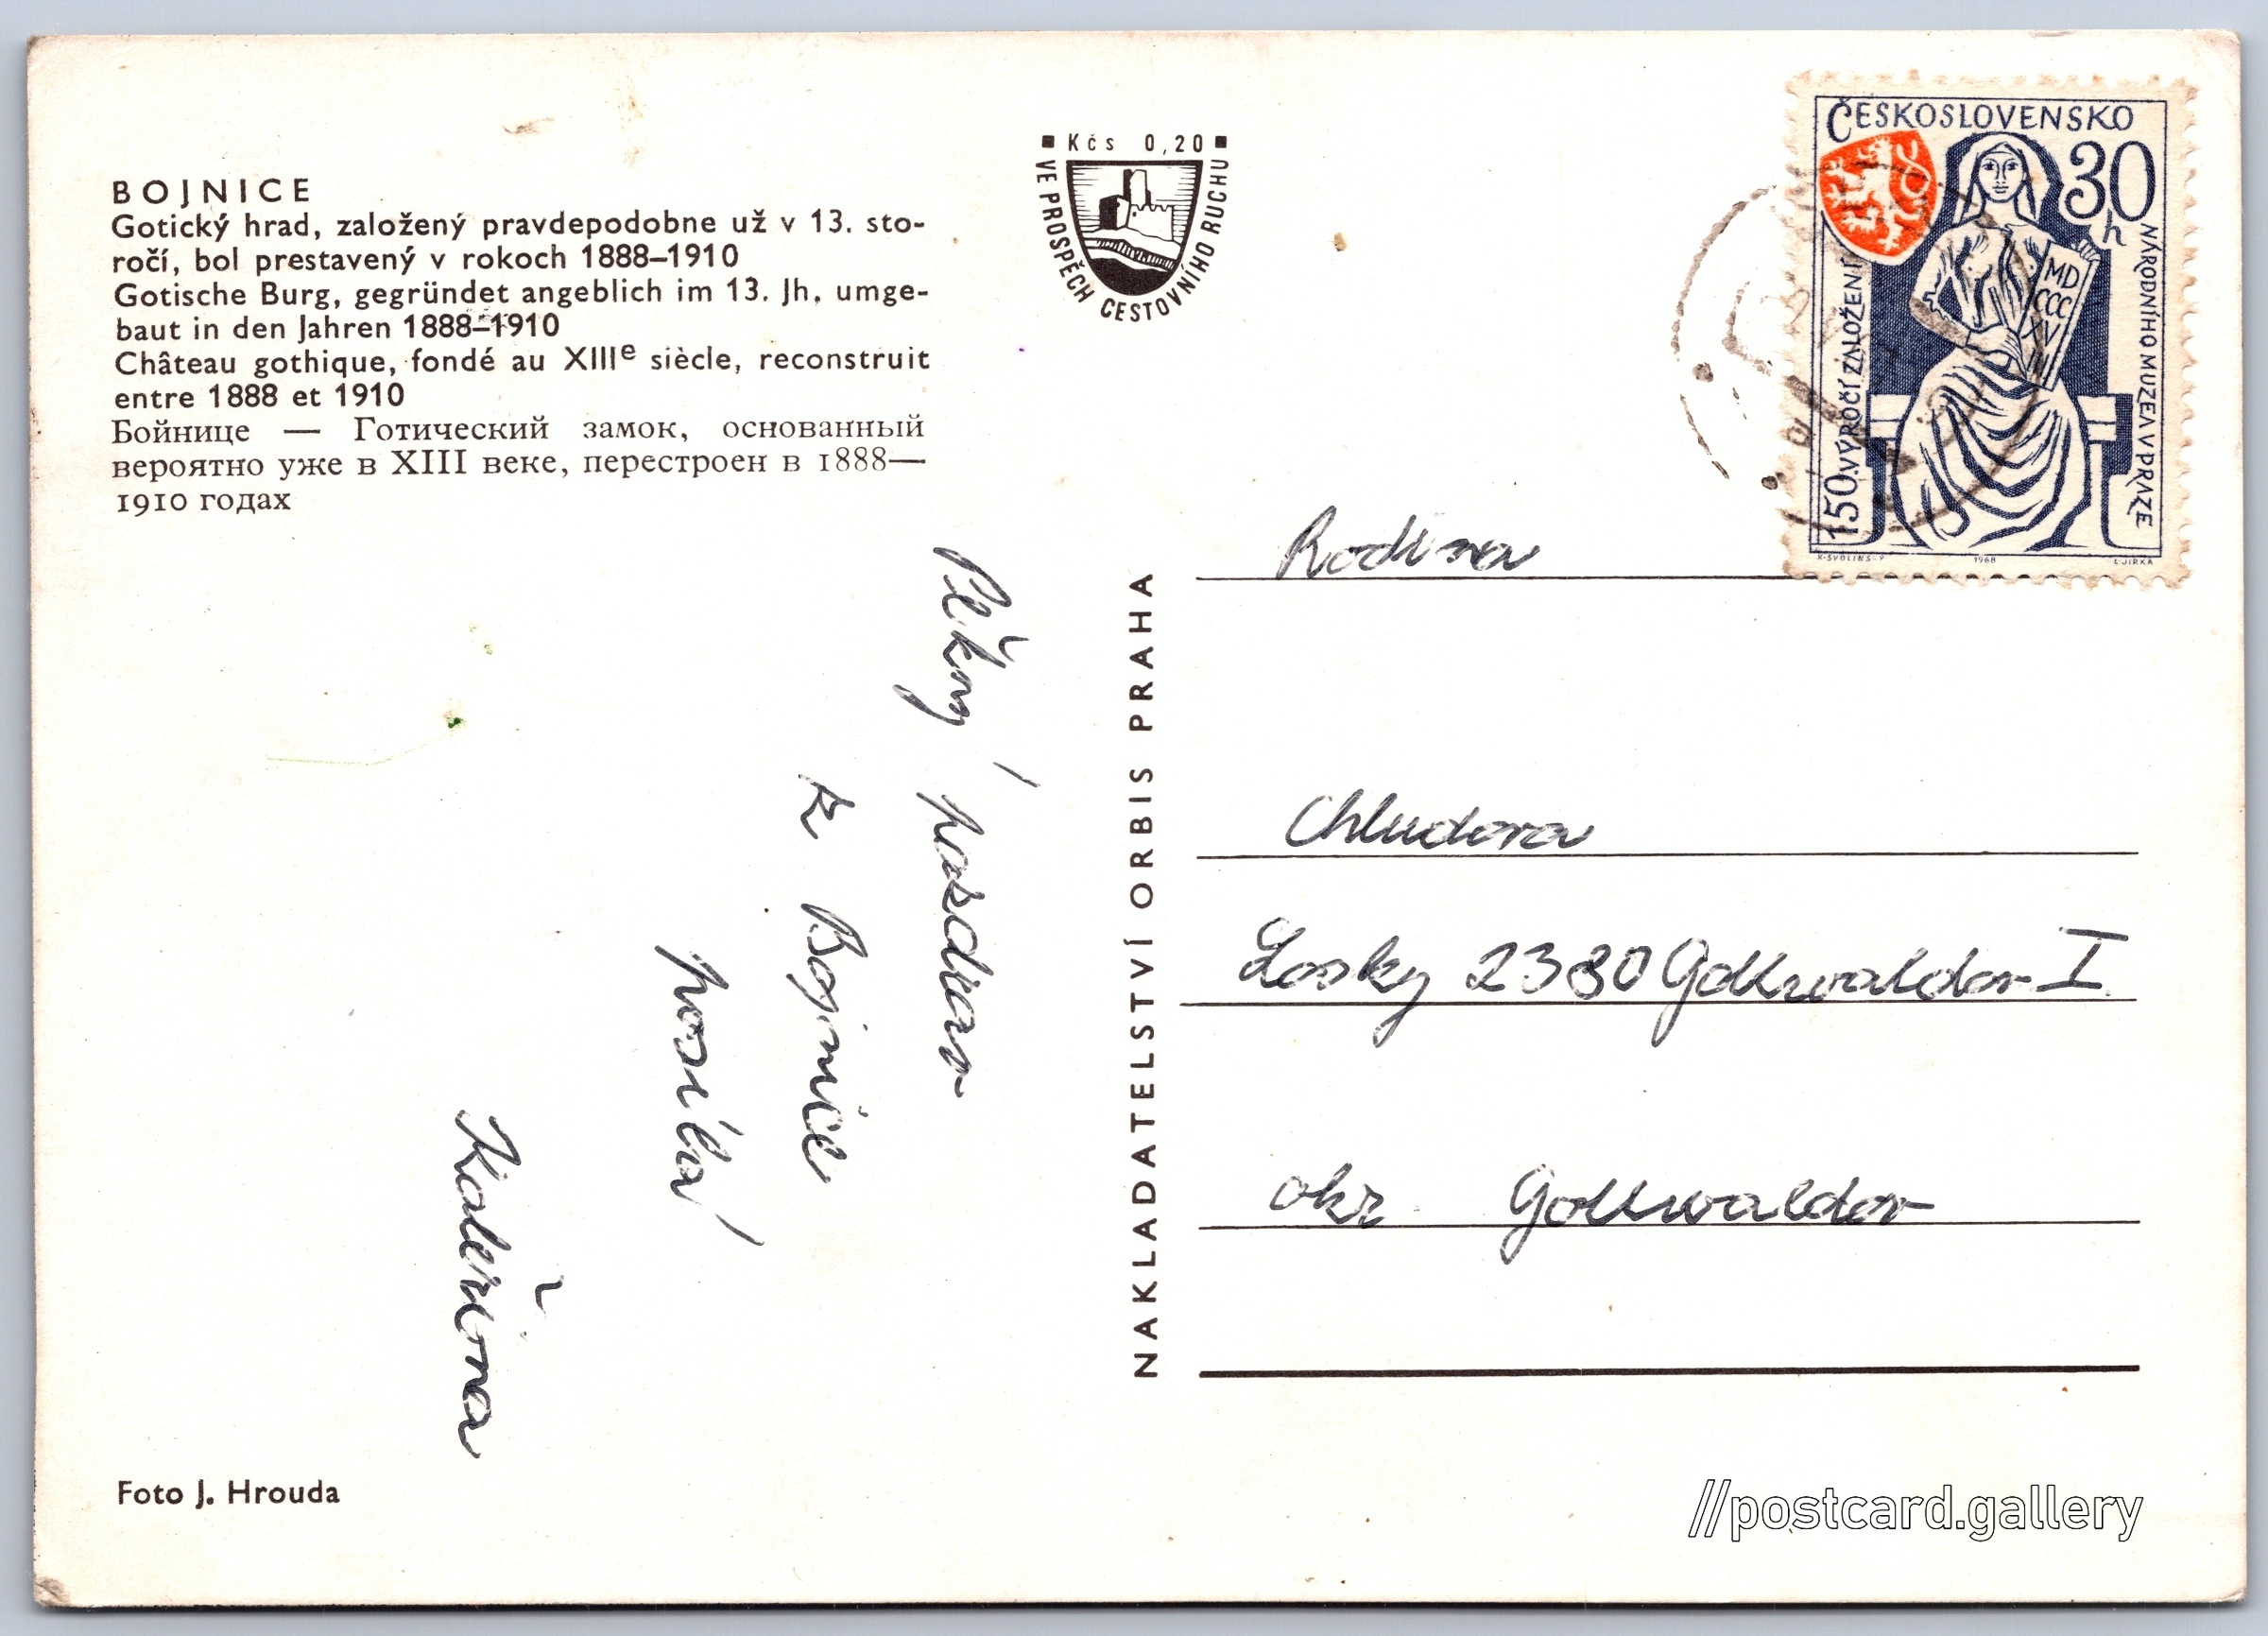 BOJNICE
Gotický hrad, založený pravdepodobne už v 13. sto-
ročí, bol prestavený v rokoch 1888–1910
Gotische Burg, gegründet angeblich im 13. Jh. umge-
baut in den Jahren 1888–1910
Château gothique, fondé au XIIIe siècle, reconstruit
entre 1888 et 1910
Бойнице — Готический замок, основанный
вероятно уже в XIII веке, перестроен в 1888—
1910 годах
Kčs 0,20
VE PROSPĚCH CESTOVNÍHO RUCHU
ČESKOSLOVENSKO
30
h
MD
CCC
XV
III
150. VÝROČÍ ZALOŽENÍ
NÁRODNÍHO MUZEA V PRAZE
K. SVOLINSKÝ 1968 L. JIRKA
Pěkný pozdrav
z Bojnice
posílá
Kateřina
NAKLADATELSTVÍ ORBIS PRAHA
Rodina
Chludova
Lesky 2380 Gottwaldov I
okr Gottwaldov
Foto J. Hrouda
//postcard.gallery